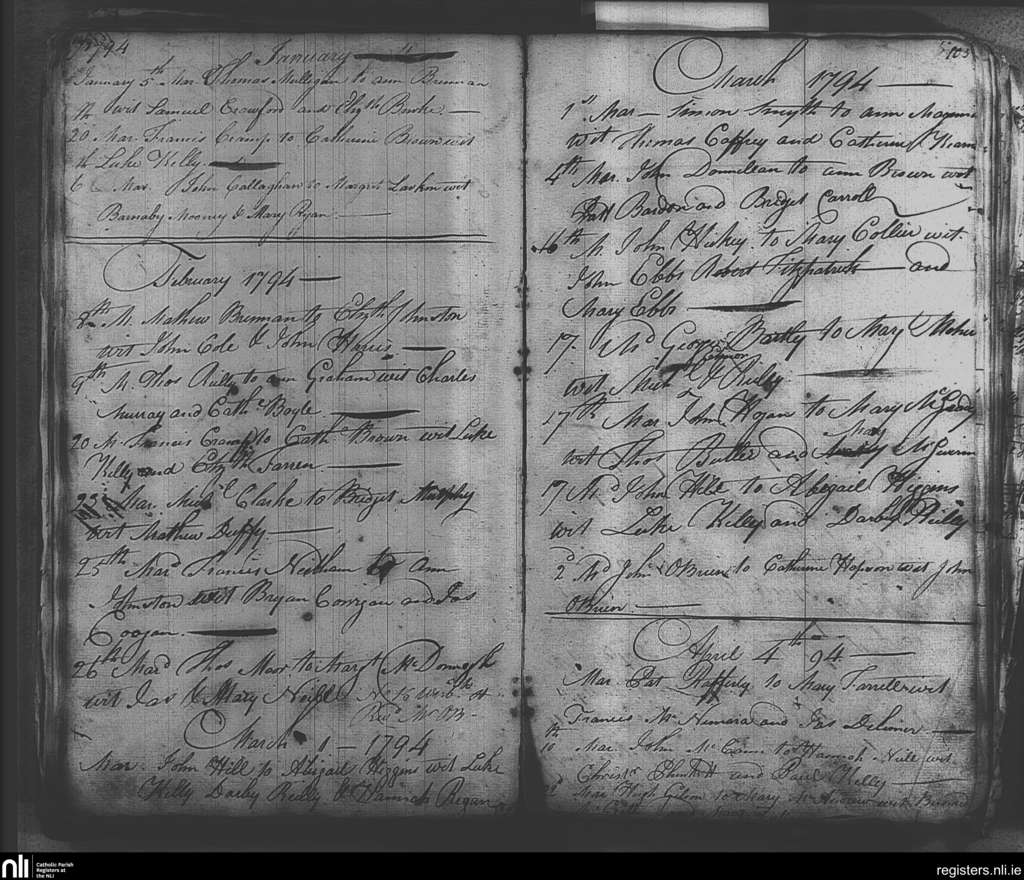 1794
January
January 5th Mar. Thomas Mulligan to ann Brennan
wit Samuel Crawford and Elizth Burke
20 Mar. Francis Cramp to Catherine Brown wit
Luke Kelly
6 Mar. John Callaghan to Margret Larkin wit
Barnaby Mooney & Mary Ryan
February 1794
8th M. Mathew Brennan to Elizth Johnston
wit John Cole & John Harris
9th M. Thos Reilly to ann Graham wit Charles
Murray and Cathe Boyle
20 M. Francis Cramp to Cathe Brown wit Luke
Kelly and Elizth Farren
Mar. Michl Clarke to Bridget Murphy
wit Mathew Duffy
25th Mard Francis Needham to Ann
Johnston wit Bryan Corrgan and Jas
Coogan
26th Mard Thos Moor to Margt McDonnogh
wit Jas & Mary Neill
March 1 - 1794
Mar. John Hill to Abigail Higgins wit Luke
Kelly Darby Reilly & Hannah Regan
103
March 1794
1st Mar - Simson Smyth to ann
wit Thomas Caffrey and Catherine
4th Mar. John Donnellan to ann Brown wit
Patt Bardon and Bridget Carroll
16th M. John Hickey to Mary Collier wit
John Ebbs Robert Fitzpatrick and
Mary Ebbs
17. Md George Bathy to Mary
wit Michl Reily
17th Mar John Hogan to Mary
Mary
wit Thos Butler and McGuerin
17 Md John Hill to Abegail Higgins
wit Luke Kelly and Darby Reilly
2d Md John OBrien to Catherine Hopson wit John
OBrien
April 4th 94
Mar. Pat Rafferty to Mary Farrell wit
Francis McNemara and Jas
10th Mar. John McCann to Hannah Neill wit
Christr Plunkett and Paul Kelly
Mar Hugh to Mary wit
nli
Catholic Parish
Registers at
the NLI
registers.nli.ie